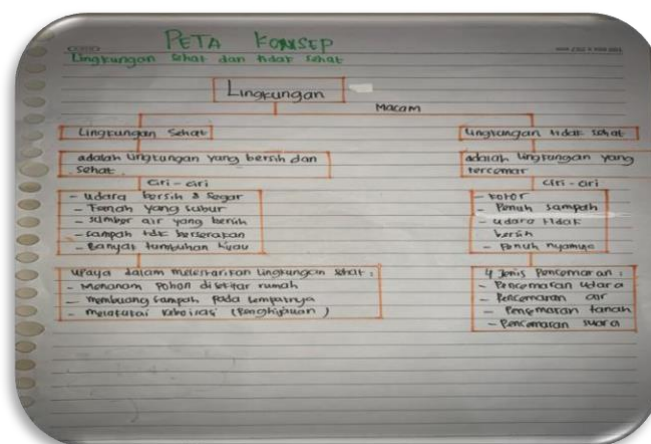 PETA KONSEP
Lingkungan Sehat dan tidak sehat
Lingkungan
Macam
Lingkungan Sehat
adalah lingkungan yang bersih dan
sehat.
Ciri - ciri
- udara bersih & segar
- Tanah yang subur
- sumber air yang bersih
- sampah tdk berserakan
- Banyak tumbuhan hijau
upaya dalam melestarikan lingkungan sehat :
- Menanam pohon disekitar rumah
- membuang sampah pada tempatnya
- melakukan (Penghijauan)
Lingkungan tidak sehat
adalah lingkungan yang
tercemar
Ciri - ciri
- Kotor
- Penuh sampah
- udara tidak
bersih
- Penuh nyamuk
4 Jenis Pencemaran :
- Pencemaran udara
- Pencemaran air
- Pencemaran tanah
- Pencemaran suara